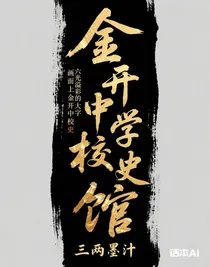 金开中学校史馆
六光溢彩的大字
画面上金开中校史
三两墨汁
话本AI